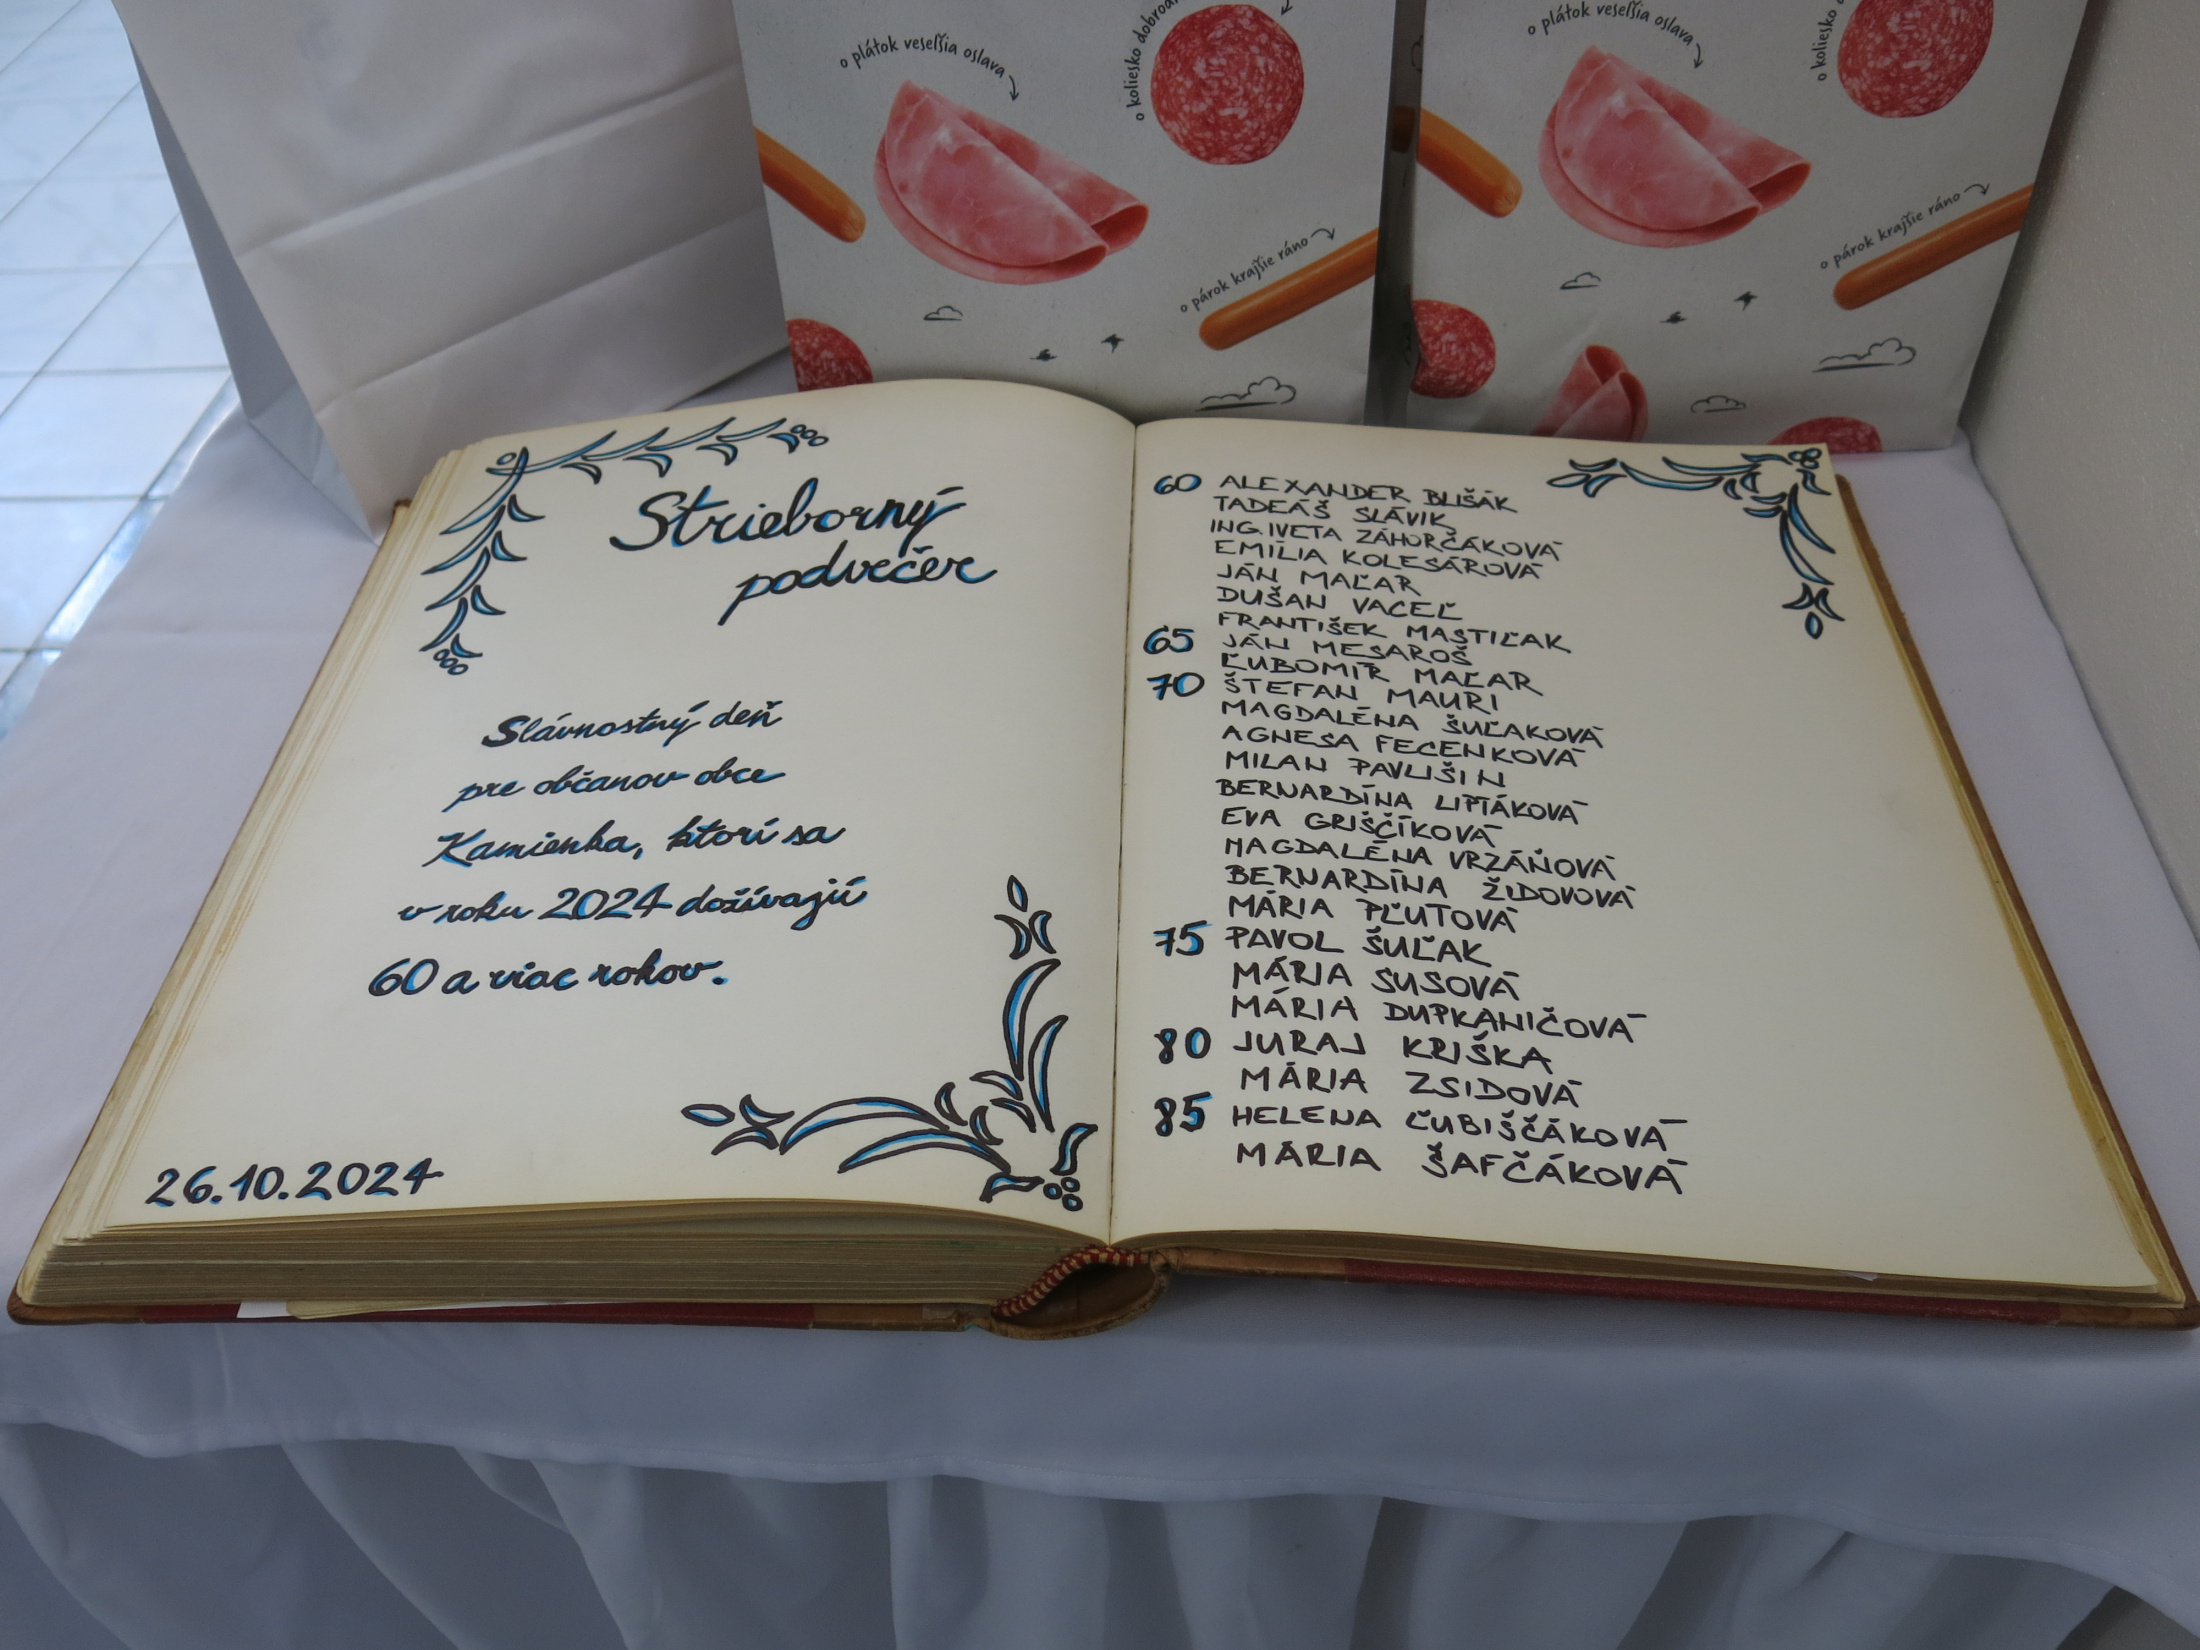 o plátok veselšia oslava
o koliesko
o párok krajšie ráno
o plátok veselšia oslava
o koliesko
o párok krajšie ráno
Strieborný
podvečer
Slávnostný deň
pre občanov obce
Kamienka, ktorí sa
v roku 2024 dožívajú
60 a viac rokov.
26.10.2024
60 ALEXANDER BLIŠÁK
TADEÁŠ SLÁVIK
ING. IVETA ZÁHORČÁKOVÁ
EMÍLIA KOLESÁROVÁ
JÁN MAĽAR
DUŠAN VACEĽ
FRANTIŠEK MASTIĽAK
65 JÁN MESAROŠ
ĽUBOMÍR MAĽAR
70 ŠTEFAN MAURI
MAGDALÉNA ŠUĽAKOVÁ
AGNESA FECENKOVÁ
MILAN PAVLIŠIN
BERNARDÍNA LIPTÁKOVÁ
EVA GRIŠČÍKOVÁ
MAGDALÉNA VRZÁŇOVÁ
BERNARDÍNA ŽIDOVOVÁ
MÁRIA PĽUTOVÁ
75 PAVOL ŠUĽAK
MÁRIA SUSOVÁ
MÁRIA DUPKANIČOVÁ
80 JURAJ KRIŠKA
MÁRIA ZSIDOVÁ
85 HELENA ĽUBIŠČÁKOVÁ
MÁRIA ŠAFČÁKOVÁ